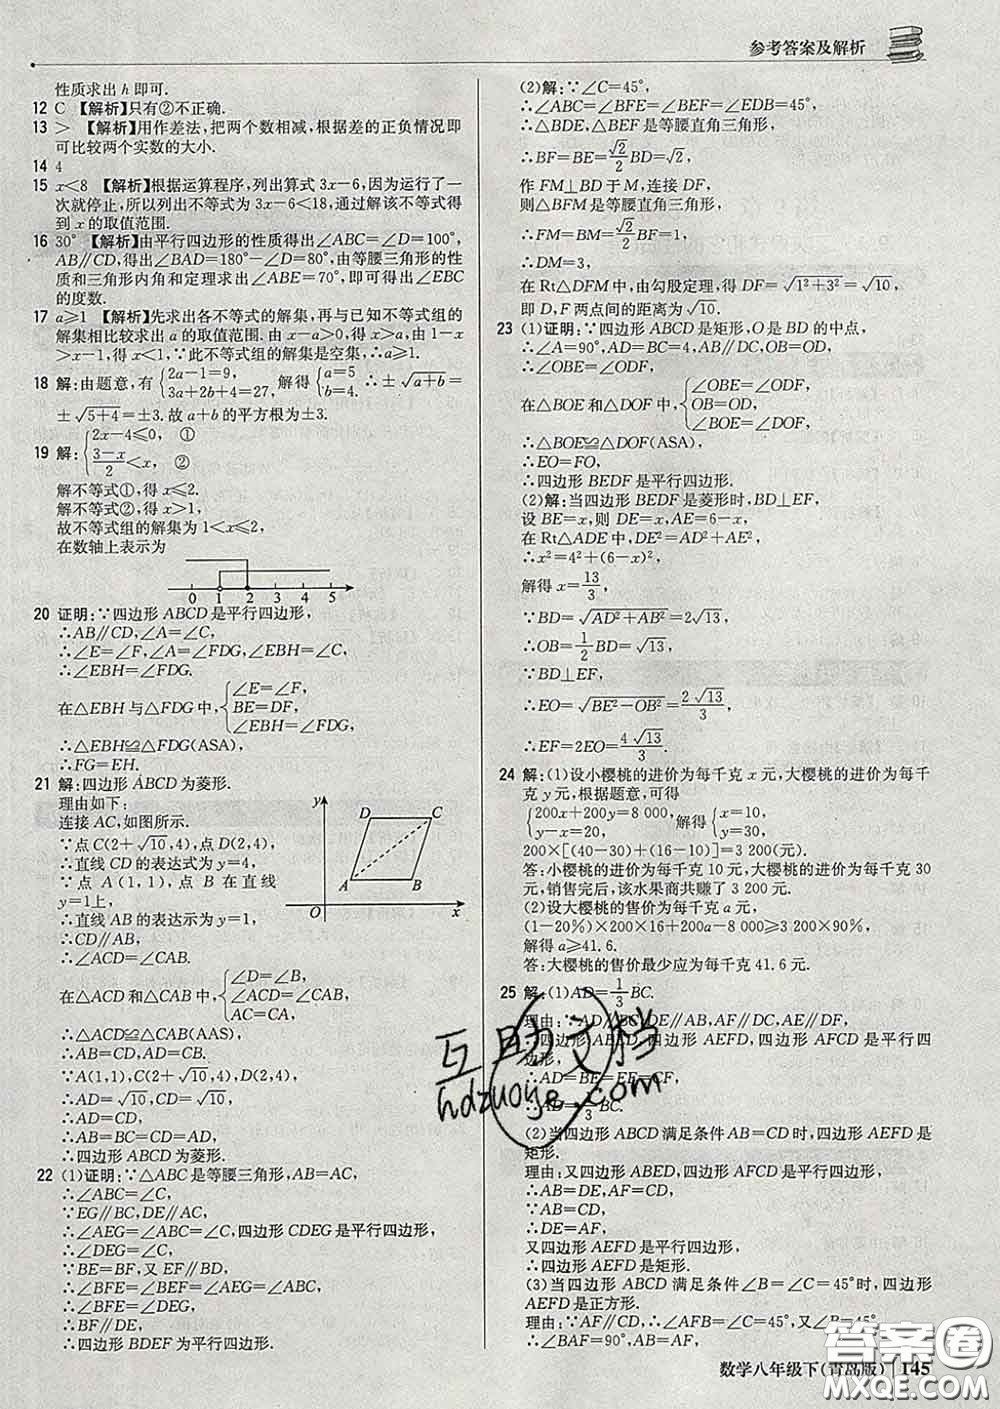 参考答案及解析
性质求出 h 即可.
12 C 【解析】只有②不正确.
13 > 【解析】用作差法,把两个数相减,根据差的正负情况即
可比较两个实数的大小.
14 4
15 x<8 【解析】根据运算程序,列出算式 3x-6,因为运行了一
次就停止,所以列出不等式为 3x-6<18,通过解该不等式得
到 x 的取值范围.
16 30° 【解析】由平行四边形的性质得出∠ABC=∠D=100°,
AB∥CD,得出∠BAD=180°-∠D=80°,由等腰三角形的性
质和三角形内角和定理求出∠ABE=70°,即可得出∠EBC
的度数.
17 a≥1 【解析】先求出各不等式的解集,再与已知不等式组的
解集相比较求出 a 的取值范围.由 x-a>0,得 x>a,由 1-x
>x-1,得 x<1,∵此不等式组的解集是空集,∴a≥1.
18 解:由题意,有{2a-1=9, 3a+2b+4=27, 解得{a=5 b=4 ∴±√(a+b)=
±√(5+4)=±3.故 a+b 的平方根为±3.
19 解:{2x-4≤0, ①
(3-x)/2<x, ②
解不等式①,得 x≤2.
解不等式②,得 x>1,
故不等式组的解集为 1<x≤2,
在数轴上表示为
0 1 2 3 4 5
20 证明:∵四边形 ABCD 是平行四边形,
∴AB∥CD,∠A=∠C,
∴∠E=∠F,∠A=∠FDG,∠EBH=∠C,
∴∠EBH=∠FDG.
在△EBH 与△FDG 中,{∠E=∠F, BE=DF, ∠EBH=∠FDG,
∴△EBH≌△FDG(ASA),
∴FG=EH.
21 解:四边形 ABCD 为菱形.
理由如下:
连接 AC,如图所示.
∵点 C(2+√10,4),点 D(2,4),
∴直线 CD 的表达式为 y=4,
∵点 A(1,1),点 B 在直线
y=1上,
∴直线 AB 的表达示为 y=1,
∴CD∥AB,
∴∠ACD=∠CAB.
y
D C
A B
O x
在△ACD 和△CAB 中,{∠D=∠B, ∠ACD=∠CAB, AC=CA,
∴△ACD≌△CAB(AAS),
∴AB=CD,AD=CB.
∵A(1,1),C(2+√10,4),D(2,4),
∴AD=√10,CD=√10,
∴AD=CD,
∴AB=BC=CD=AD,
∴四边形 ABCD 为菱形.
22 (1)证明:∵△ABC 是等腰三角形,AB=AC,
∴∠ABC=∠C,
∵EG∥BC,DE∥AC,
∴∠AEG=∠ABC=∠C,四边形 CDEG 是平行四边形,
∴∠DEG=∠C,
∵BE=BF,又 EF∥DG,
∴∠BFE=∠BEF=∠AEG=∠ABC,
∴∠BFE=∠DEG,
∴BF∥DE,
∴四边形 BDEF 为平行四边形.
(2)解:∵∠C=45°,
∴∠ABC=∠BFE=∠BEF=∠EDB=45°,
∴△BDE,△BEF 是等腰直角三角形,
∴BF=BE=√2/2BD=√2,
作 FM⊥BD 于 M,连接 DF,
则△BFM 是等腰直角三角形,
∴FM=BM=√2/2BF=1,
∴DM=3,
在 Rt△DFM 中,由勾股定理,得 DF=√(1²+3²)=√10,
即 D,F 两点间的距离为√10.
23 (1)证明:∵四边形 ABCD 是矩形,O 是 BD 的中点,
∴∠A=90°,AD=BC=4,AB∥DC,OB=OD,
∴∠OBE=∠ODF,
在△BOE 和△DOF 中,{∠OBE=∠ODF, OB=OD, ∠BOE=∠DOF,
∴△BOE≌△DOF(ASA),
∴EO=FO,
∴四边形 BEDF 是平行四边形.
(2)解:当四边形 BEDF 是菱形时,BD⊥EF,
设 BE=x,则 DE=x,AE=6-x,
在 Rt△ADE 中,DE²=AD²+AE²,
∴x²=4²+(6-x)²,
解得 x=13/3,
∵BD=√(AD²+AB²)=2√13,
∴OB=1/2BD=√13,
∵BD⊥EF,
∴EO=√(BE²-OB²)=2√13/3,
∴EF=2EO=4√13/3.
24 解:(1)设小樱桃的进价为每千克 x 元,大樱桃的进价为每千
克 y 元,根据题意,可得
{200x+200y=8 000, y-x=20, 解得{x=10, y=30,
200×[(40-30)+(16-10)]=3 200(元).
答:小樱桃的进价为每千克 10 元,大樱桃的进价为每千克 30
元,销售完后,该水果商共赚了 3 200 元.
(2)设大樱桃的售价为每千克 a 元,
(1-20%)×200×16+200a-8 000≥3 200×90%,
解得 a≥41.6.
答:大樱桃的售价最少应为每千克 41.6 元.
25 解:(1)AD=1/3BC.
理由:∵AD∥BC,DE∥AB,AF∥DC,AE∥DF,
∴四边形 ABED,四边形 AEFD,四边形 AFCD 是平行四
边形,
∴AD=BE=EF=CF,
∴AD=1/3BC.
(2)当四边形 ABCD 满足条件 AB=CD 时,四边形 AEFD 是
矩形.
理由:又四边形 ABED,四边形 AFCD 是平行四边形,
∴AB=DE,AF=CD,
∵AB=CD,
∴DE=AF,
又四边形 AEFD 是平行四边形,
∴四边形 AEFD 是矩形.
(3)当四边形 ABCD 满足条件∠B=∠C=45°时,四边形
AEFD 是正方形.
理由:∵AF∥CD,∴∠AFB=∠C=45°,又∠B=45°,
∴∠BAF=90°,AB=AF,
互助文档
hdzuoye.com
答案圈
MXQE.COM
数学八年级下(青岛版) 145